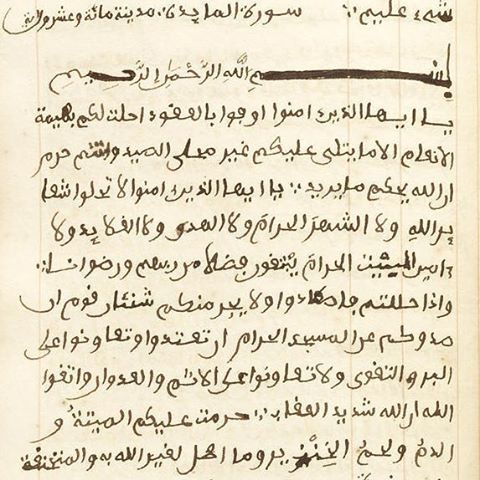 شيء عليم سورة المايدة مدينة مائة وعشرون
بسم اللَّهِ الرَّحْمَٰنِ الرَّحِيمِ
يا ايها الذين امنوا اوفوا بالعقود احلت لكم بهيمة
الانعام الا ما يتلى عليكم غير محلى الصيد وانتم حرم
ان الله يحكم ما يريد يا ايها الذين امنوا لا تحلوا شعا
ير الله ولا الشهر الحرام ولا الهدى ولا القلايد ولا
ءامين البيت الحرام يبتغون فضلا من ربهم ورضوانا
واذا حللتم فاصطادوا ولا يجرمنكم شنئان قوم ان
صدوكم عن المسجد الحرام ان تعتدوا وتعاونوا على
البر والتقوى ولا تعاونوا على الاثم والعدوان واتقوا
الله ان الله شديد العقاب حرمت عليكم الميتة و
الدم ولحم الخنزير وما اهل لغير الله به والمنخنقة